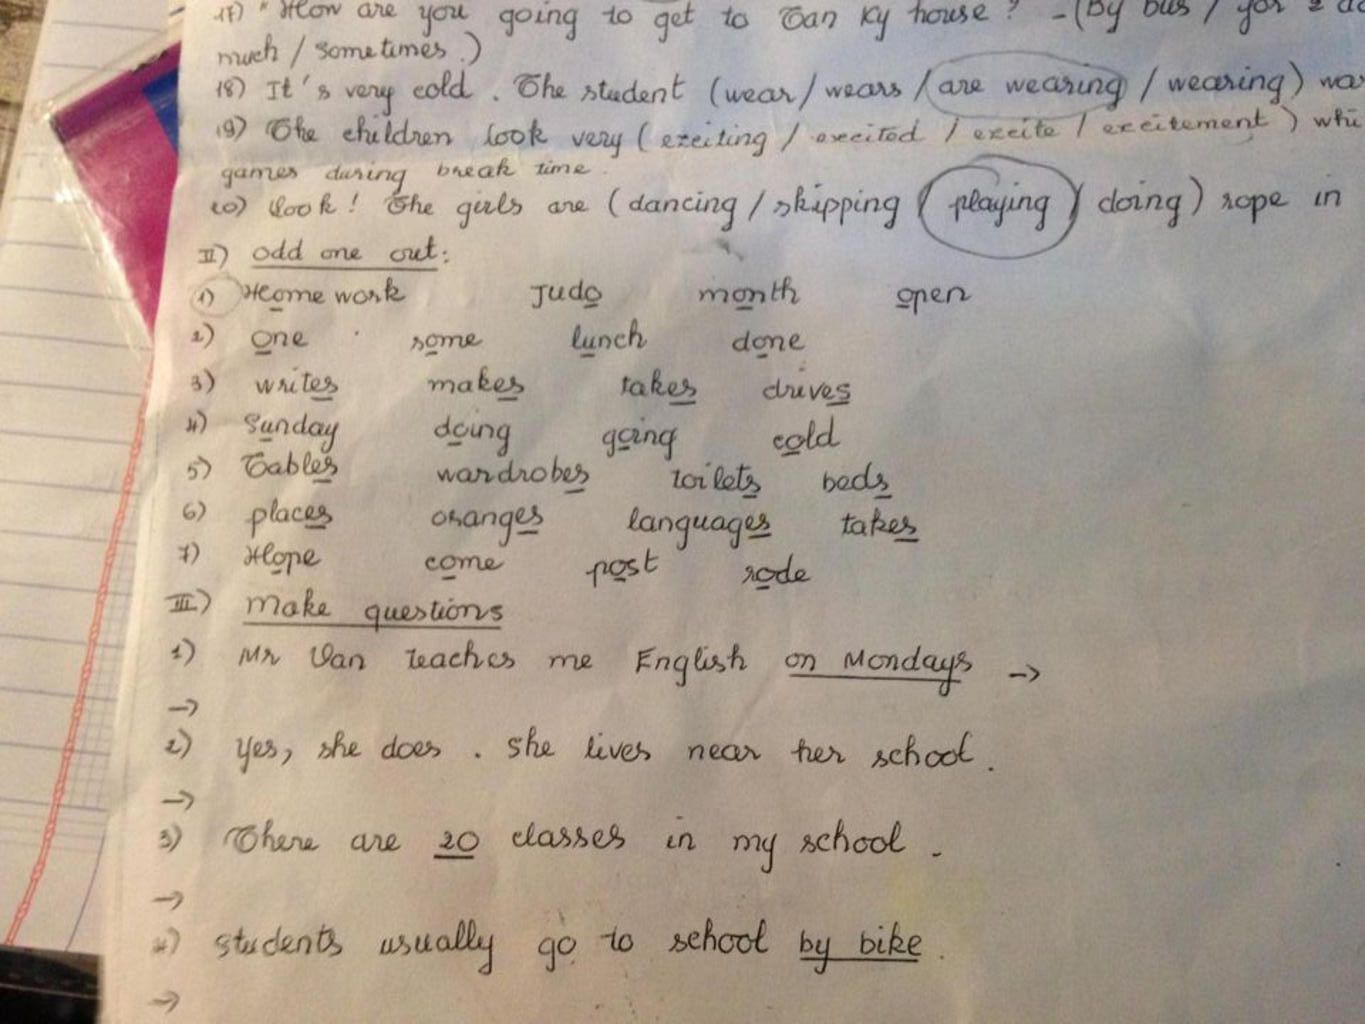 17) "How are you going to get to Tan Ky house? - (By bus / for 2
much / sometimes.)
18) It's very cold. The student (wear / wears / are wearing / wearing)
19) The children look very (exciting / excited / excite / excitement)
games during break time.
20) Look! The girls are (dancing / skipping / playing / doing) rope in
II) odd one out:
1) Homework Judo month open
2) one some lunch done
3) writes makes takes drives
4) Sunday doing going cold
5) Tables wardrobes toilets beds
6) places oranges languages takes
7) Hope come post rode
III) Make questions
1) Mr Van teaches me English on Mondays ->
->
2) Yes, she does. She lives near her school.
->
3) There are 20 classes in my school.
->
4) students usually go to school by bike.
->